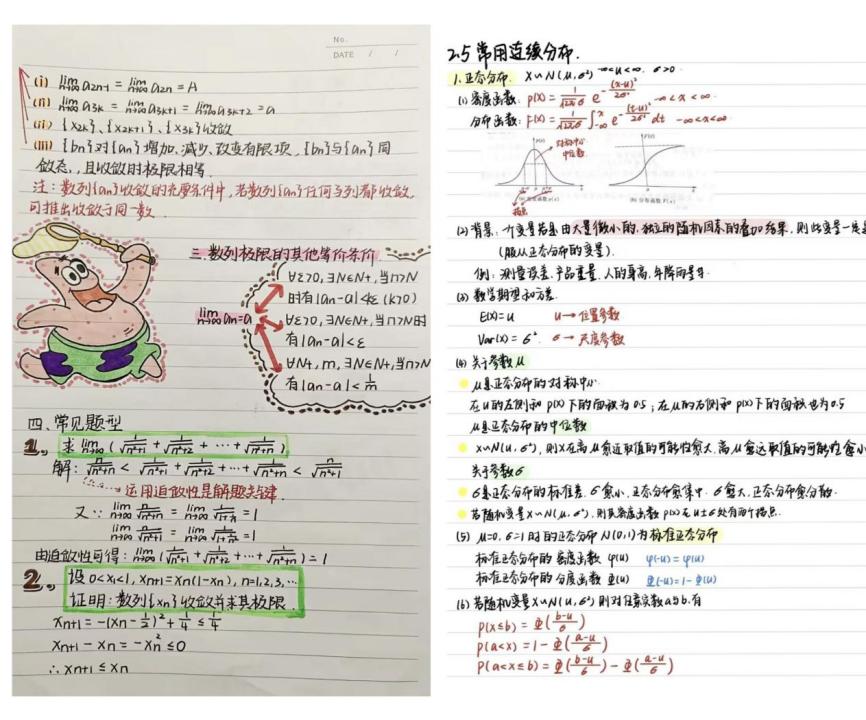 No.
DATE / /
(i) lim n→∞ a2n-1 = lim n→∞ a2n = A
(ii) lim n→∞ a3k = lim n→∞ a3k+1 = lim n→∞ a3k+2 = a
(iii) {x2k}、{x2k+1}、{x3k}收敛
(IIII) {bn}对{an}增加、减少、改变有限项，{bn}与{an}同
敛态，且收敛时极限相等.
注：数列{an}收敛的充要条件中，若数列{an}任何子列都收敛，
可推出收敛于同一数.
三.数列极限的其他等价条价
lim n→∞ an=a
∀ε>0,∃N∈N+,当n>N
时有|an-a|<kε (k>0)
∀ε>0,∃N∈N+,当n>N时
有|an-a|<ε
∀N+,m,∃N∈N+,当n>N
有|an-a|<1/m
四、常见题型
1、求 lim n→∞ (1/√(n²+1) + 1/√(n²+2) + ··· + 1/√(n²+n))
解: n/√(n²+n) < 1/√(n²+1) + 1/√(n²+2) + ··· + 1/√(n²+n) < n/√(n²+1)
运用迫敛性是解题关键.
又∵ lim n→∞ n/√(n²+n) = lim n→∞ 1/√(1+1/n) = 1
lim n→∞ n/√(n²+1) = lim n→∞ 1/√(1+1/n²) = 1
由迫敛性可得: lim n→∞ (1/√(n²+1) + 1/√(n²+2) + ··· + 1/√(n²+n)) = 1
2、设 0<x1<1, xn+1=xn(1-xn), n=1,2,3,···
证明: 数列{xn}收敛并求其极限.
xn+1 = -(xn-1/2)²+1/4 ≤ 1/4
xn+1-xn = -xn² ≤0
∴xn+1 ≤ xn
2.5 常用连续分布.
1.正态分布. X~N(μ,σ²) -∞<μ<∞. σ>0.
(1) 密度函数: p(x) = 1/(√2π σ) e^-(x-μ)²/2σ² -∞<x<∞.
分布函数: F(x) = 1/(√2π σ) ∫-∞^x e^-(t-μ)²/2σ² dt -∞<x<∞
p(x)
对称中心
中位数
拐点
(a) 密度函数 p(x)
F(x)
(b) 分布函数 F(x)
(2) 背景: 一个变量若是由大量微小的、独立的随机因素的叠加结果, 则此变量一定是
(服从正态分布的变量).
例: 测量误差、产品重量、人的身高、年降雨量等.
(3) 数学期望和方差.
E(X)=μ μ→位置参数
Var(X)=σ². σ→尺度参数
(4) 关于参数μ
μ是正态分布的对称中心.
在μ的左侧和p(x)下的面积为0.5; 在μ的右侧和p(x)下的面积也为0.5
μ是正态分布的中位数
X~N(μ,σ²), 则X在离μ愈近取值的可能性愈大, 离μ愈远取值的可能性愈小
关于参数σ
σ是正态分布的标准差. σ愈小, 正态分布愈集中. σ愈大, 正态分布愈分散.
若随机变量X~N(μ,σ²), 则其密度函数p(x)在μ±σ处有两个拐点.
(5) μ=0, σ=1时的正态分布N(0,1)为标准正态分布
标准正态分布的密度函数 φ(u) φ(-u)=φ(u)
标准正态分布的分布函数 Φ(u) Φ(-u)=1-Φ(u)
(6) 若随机变量X~N(μ,σ²)则对任意实数a与b.有
P(X≤b) = Φ((b-μ)/σ)
P(a<X) = 1-Φ((a-μ)/σ)
P(a<X≤b) = Φ((b-μ)/σ) - Φ((a-μ)/σ)